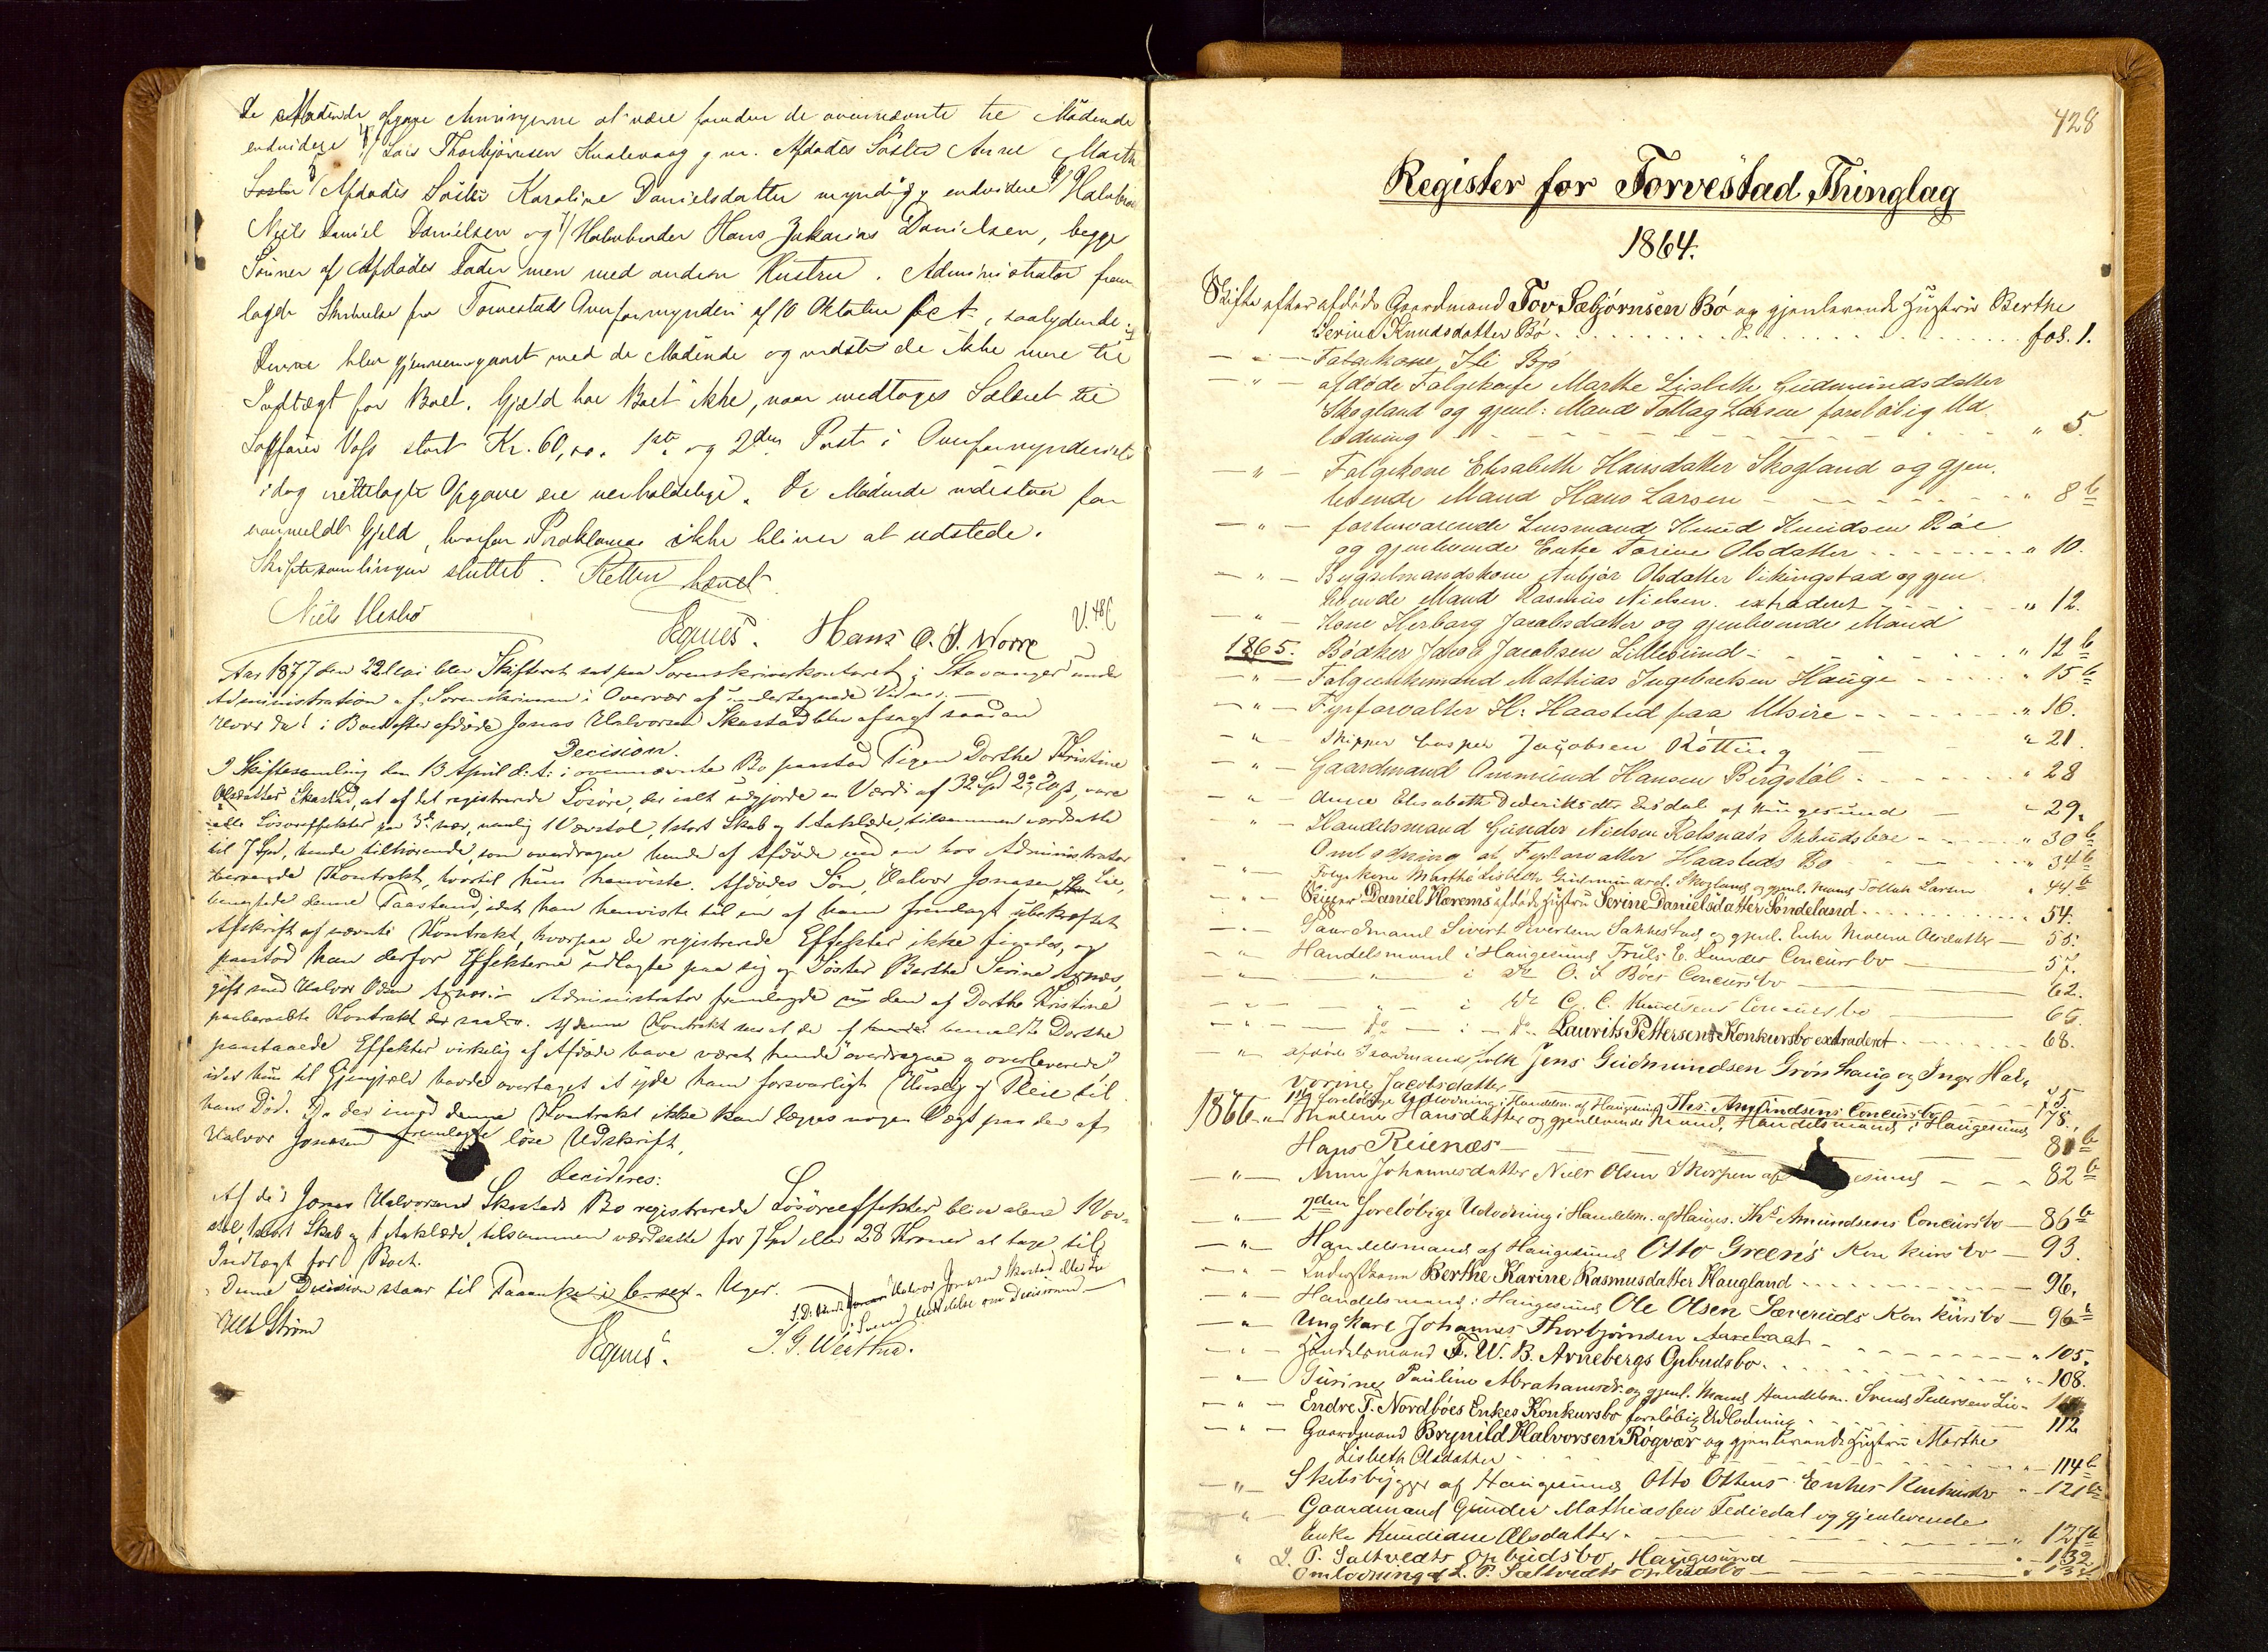 De Mødende opgave Arvingerne at være foruden de ovennævnte tre Mødende
endvidere 4/ Lars Thorbjørnsen Kvalevaag g.m. Afdødes Søster Anne Marthe
5/ Afdødes Søster Karoline Danielsdatter myndig, endvidere 6/ Halvbroder
Niels Daniel Danielsen og 7/ Halvbroder Hans Zakarias Danielsen, begge
Sønner af Afdødes Fader men med anden Hustru. Administrator frem
lagde Skrivelse fra Torvestad Overformynderi af 10 Oktober f.A., saalydende:
Denne blev gjennemgaaet med de Mødende og vidste de ikke mere til
Indtægt for Boet. Gjæld har Boet ikke, naar undtages Salæret til
Sagfører Voss stort Kr. 60,00. 1ste og 2den Post i Overformynderiets
idag fremlagte Opgave ere uerholdelige. De Mødende indestaar for
uanmeldt Gjeld, hvorfor Proklama ikke bliver at udstede.
Skiftesamlingen sluttet. Retten hævet
Niels Hesbø
Eqvues. Hans O. S. Worre
Aar 1877 den 22 Mai blev Skifteret sat paa Sorenskriverkontoret i Stavanger under
Administration af Sorenskriveren i Overvær af undertegnede Vidner:
Hvor da: i Boet efter afdøde Jonas Halvorsen Skastad blev afsagt saadan
Decision.
I Skiftesamling den 13 April d.A. i ovennævnte Bo paastod Pigen Dorthe Kristine
Olsdatter Skastad, at af det registrerede Løsøre, der ialt udgjorde en Værdi af 32 Spd 2 , vare
alle Løsøreffekter paa 3de nær, nemlig 1 Vævstol, 1 stort Skab og 1 Aaklæde, tilsammen værdsatte
til 7 Spd, hende tilhørende, som overdragne hende af Afdøde ved en hos Administrator
beroende Kontrakt, hvortil hun henviste. Afdødes Søn, Halvor Jonasen Lie,
benegtede denne Paastand, idet han henviste til en af ham fremlagt ubekræftet
Afskrift af nævnte Kontrakt, hvorpaa de registrerede Effekter ikke findes, og
paastod han derfor Effekterne udlagte paa sig og Søster Berthe Serine
gift med Halvor Odsen . Administrator fremlagde nu den af Dorthe Kristine
paaberaabte Kontrakt der saalø. Af denne Kontrakt sees at de af bemeldte Dorthe
paastaaede Effekter virkelig af Afdøde have været hende "overdragne og overleverede"
idet hun til Gjengjæld havde overtaget at yde ham forsvarligt Huusly og Pleie til
hans Død. Da der imod denne Kontrakt ikke kan lægges nogen Vægt paa den af
Halvor Jonasen fremlagte løse Udskrift,
Decideres:
Af de i Jonas Halvorsens Skastads Bo registrerede Løsøreeffekter bliver alene 1 Væv-
stol, 1 stort Skab og 1 Aaklæde, tilsammen værdsatte for 7 Spd eller 28 Kroner at tage til
Indtægt for Boet.
Denne Decision staar til Paaanke i 6-sex- Uger.
Halvor Jonasen Skastad eller Lie
Underretning om Decisionen
Ulb Strøm
Eqvues. T. G. Werthe.
428
Register for Torvestad Thinglag
1864.
Skifte efter afdøde Gaardmand Tov Sæbjørnsen Bø og gjenlevende Hustru Berthe
Serine Knudsdatter Bø fol. 1.
— " — Følgekone Bø
— " — afdøde Følgekone Marthe Lisbeth Gudmundsdatter
Skogland og gjenl: Mand Tollag Larsen foreløbig Ud
lodning " 5.
— " — Følgekone Elisabeth Hansdatter Skogland og gjen
levende Mand Hans Larsen " 8 b
— " — forhenværende Lensmand Knud Knudsen Bøe
og gjenlevende Enke Torine Olsdatter " 10.
— " — Bygselmandskone Anbjør Olsdatter Vikingstad og gjen
levende Mand Rasmus Nielsen. extraderet " 12.
— " Kone Herborg Jacobsdatter og gjenlevende Mand
1865. Bødker Jacob Jacobsen Lillesund " 12 b
— " — Følgeenkemand Mathias Ingebretsen Hauge " 15 b
— " — Fyrforvalter H. Haasted paa Utsire " 16.
— " — Skipper Casper Jacobsen Røtting " 21.
— " — Gaardmand Ommund Hansen Bergstøl " 28
— " Anne Elisabeth Dideriksdtr Eisdal af Haugesund " 29.
— " — Handelsmand Gunder Nielsen Rabsnæs Opbudsboe " 30 b
Omlodning af Fyrforvalter Haasteds Bo " 34 b
— " Følgekone Marthe Lisbeth Gudmundsd. Skogland og gjenl. Mand Tollak Larsen " 44 b
— " — Skipper Daniel Hærems afdøde Hustru Serine Danielsdatter Søndeland 54.
— " — Gaardmand Sivert Iversen Sakkestad og gjenl. Enke Malene Olesdatter 55.
— " Handelsmand i Haugesund Truls E. Lunder Concursbo 57.
— " — " i do O. S. Bøes Concursbo 62.
— " — " i do C. C. Knudsens Concursbo 65.
— " — do — i — do Laurits Pettersens Konkursbo extraderet 68.
— " afdøde Gaardmandsfolk Jens Gudmundsen Grønhaug og Inger Hal-
vorine Jacobsdatter 75.
1ste foreløbige Udlodning i Handelsm. af Haugesund Ths. Amundsens Concursbo 78.
1866. " Malene Hansdatter og gjenlevende Mand, Handelsmand i Haugesund
Hans Reienæs 80 b
— " — Anne Johannesdatter Niels Olsen Skorpen af esund 82 b
— " — 2den foreløbige Udlodning i Handelsm. af Hauges. Ths Amundsens Concursbo 86 b
— " — Handelsmand af Haugesund Otto Green's Konkursbo 93.
— " — Inderstkone Berthe Karine Rasmusdatter Haugland 96.
— " Handelsmand i Haugesund Ole Olsen Sævereids Konkursbo 96 b
— " Ungkarl Johannes Thorbjørnsen Aarebraat " 105.
— " — Handelsmand T. W. B. Arnebergs Opbudsbo. " 108.
— " — Gurine Pauline Abrahamsdr. og gjenl. Mand Handelsm. Svend Pedersen Lie
— " — Endre T. Nordbøes Enkes Konkursbo foreløbig Udlodning 112
— " — Gaardmand Brynild Halvorsen Røgvær og gjenlevende Hustru Marthe
Lisbeth Olsdatter 114 b
— " — Skibsbygger af Haugesund Otto Ottens Enkes Konkursbo 121 b
— " Gaardmand Gunder Mathiassen Fediedal og gjenlevende
Enke Kundiane Olsdatter " 127 b
" L. P. Saltvedts Opbudsbo, Haugesund " 132
Omlodning af L. P. Saltvedts Opbudsbo